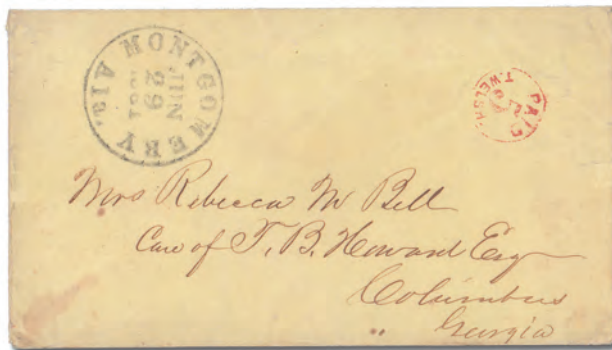 MONTGOMERY Ala.
JUN
29
1861
PAID
5
T. WELSH.
Mrs Rebecca M Bell
Care of T. B. Howard Esq
Columbus
Georgia